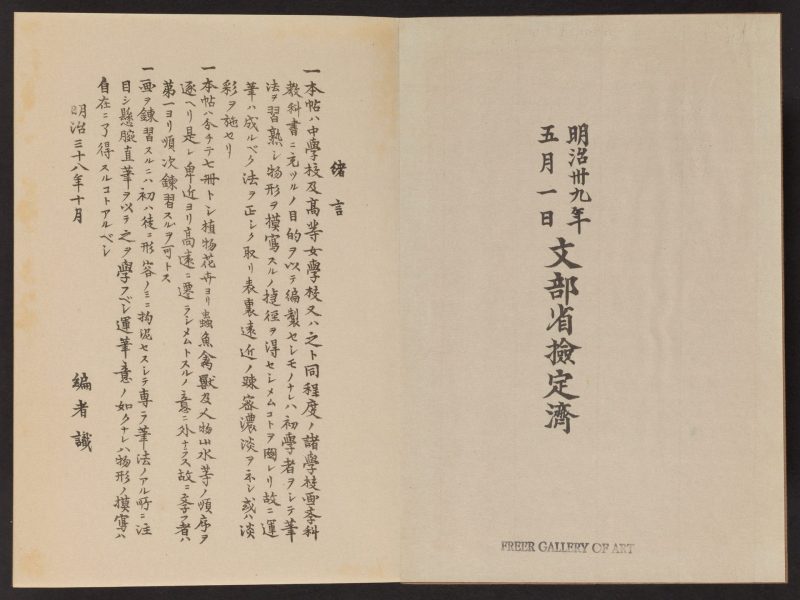 明治卅九年
五月一日
文部省檢定濟
FREER GALLERY OF ART
緒言
一本帖ハ中學校及高等女學校又ハ之ト同程度ノ諸學校画學科
教科書ニ充ツルノ目的ヲ以テ編製セシモノナレハ初學者ヲシテ筆
法ヲ習熟シ物形ヲ摸寫スルノ捷徑ヲ得セシメムコトヲ圖レリ故ニ運
筆ハ成ルベク法ヲ正シク取リ表裏遠近ノ疎密濃淡ヲ示シ或ハ淡
彩ヲ施セリ
一本帖ハ分チテ七冊トシ植物花卉ヨリ蟲魚禽獸及人物山水等ノ順序ヲ
逐ヘリ是レ卑近ヨリ高遠ニ遷ラシメムトスルノ意ニ外ナラス故ニ學フ者ハ
第一ヨリ順次錬習スルヲ可トス
一画ヲ錬習スルニハ初ハ後ニ形容ノミニ拘泥セスシテ専ラ筆法ノアル所ニ注
目シ懸腕直筆ヲ以テ之ヲ學フベシ運筆意ノ如クナレハ物形ノ摸寫ハ
自在ニ了得スルコトアルベシ
明治三十八年十月
編者識